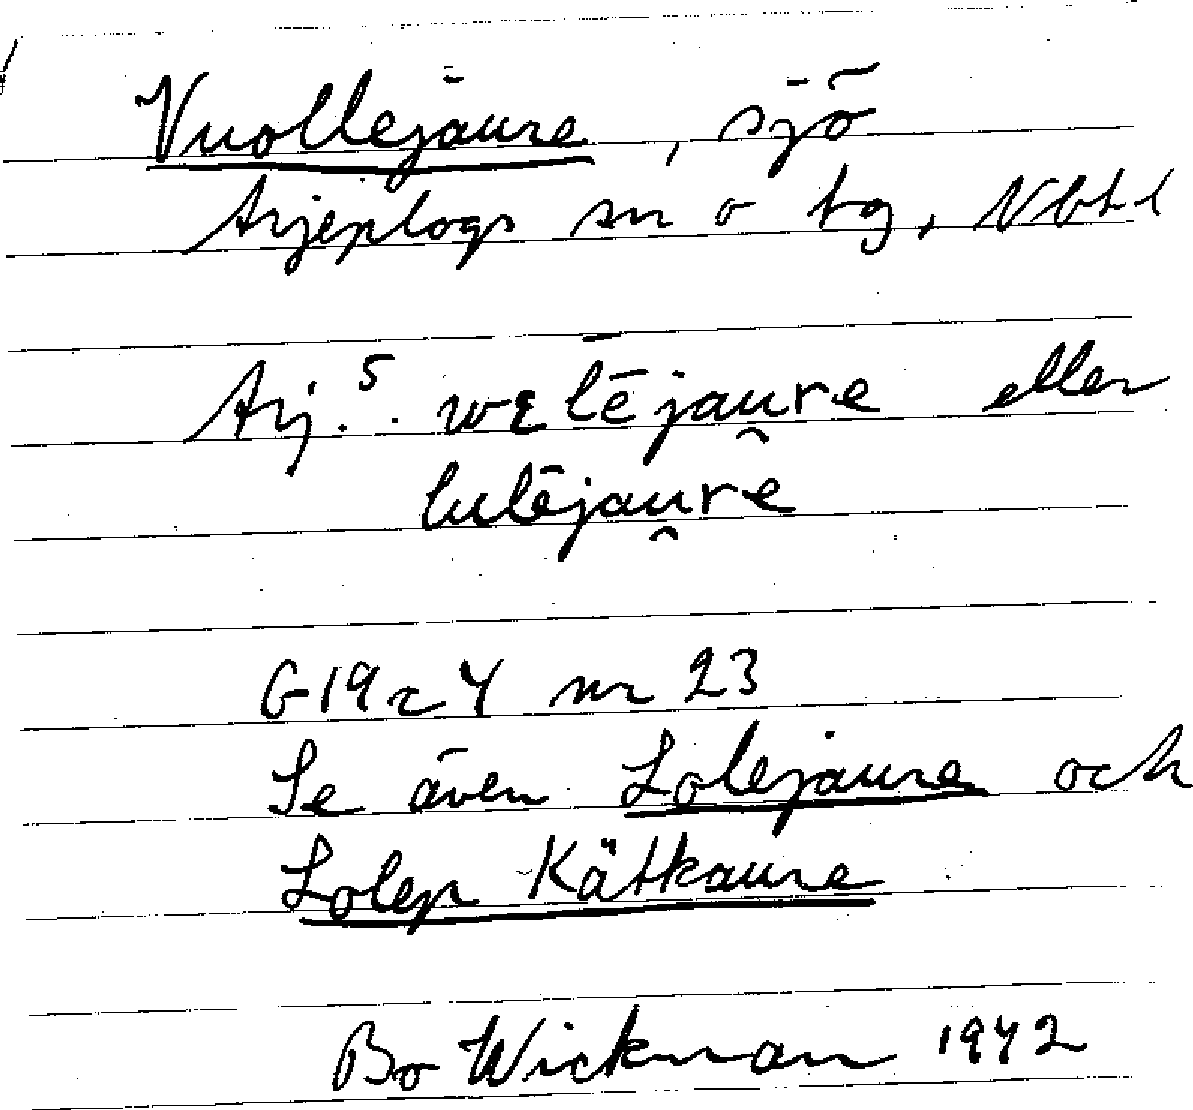 Vuollejaure, sjö
Arjeplogs sn o tg, Nbtl
Arj.⁵. wᴇlējau̯re eller
lulējau̯re
G19a4 nr 23
Se även Lolejaure och
Lolep Kätkaure
Bo Wickman 1942